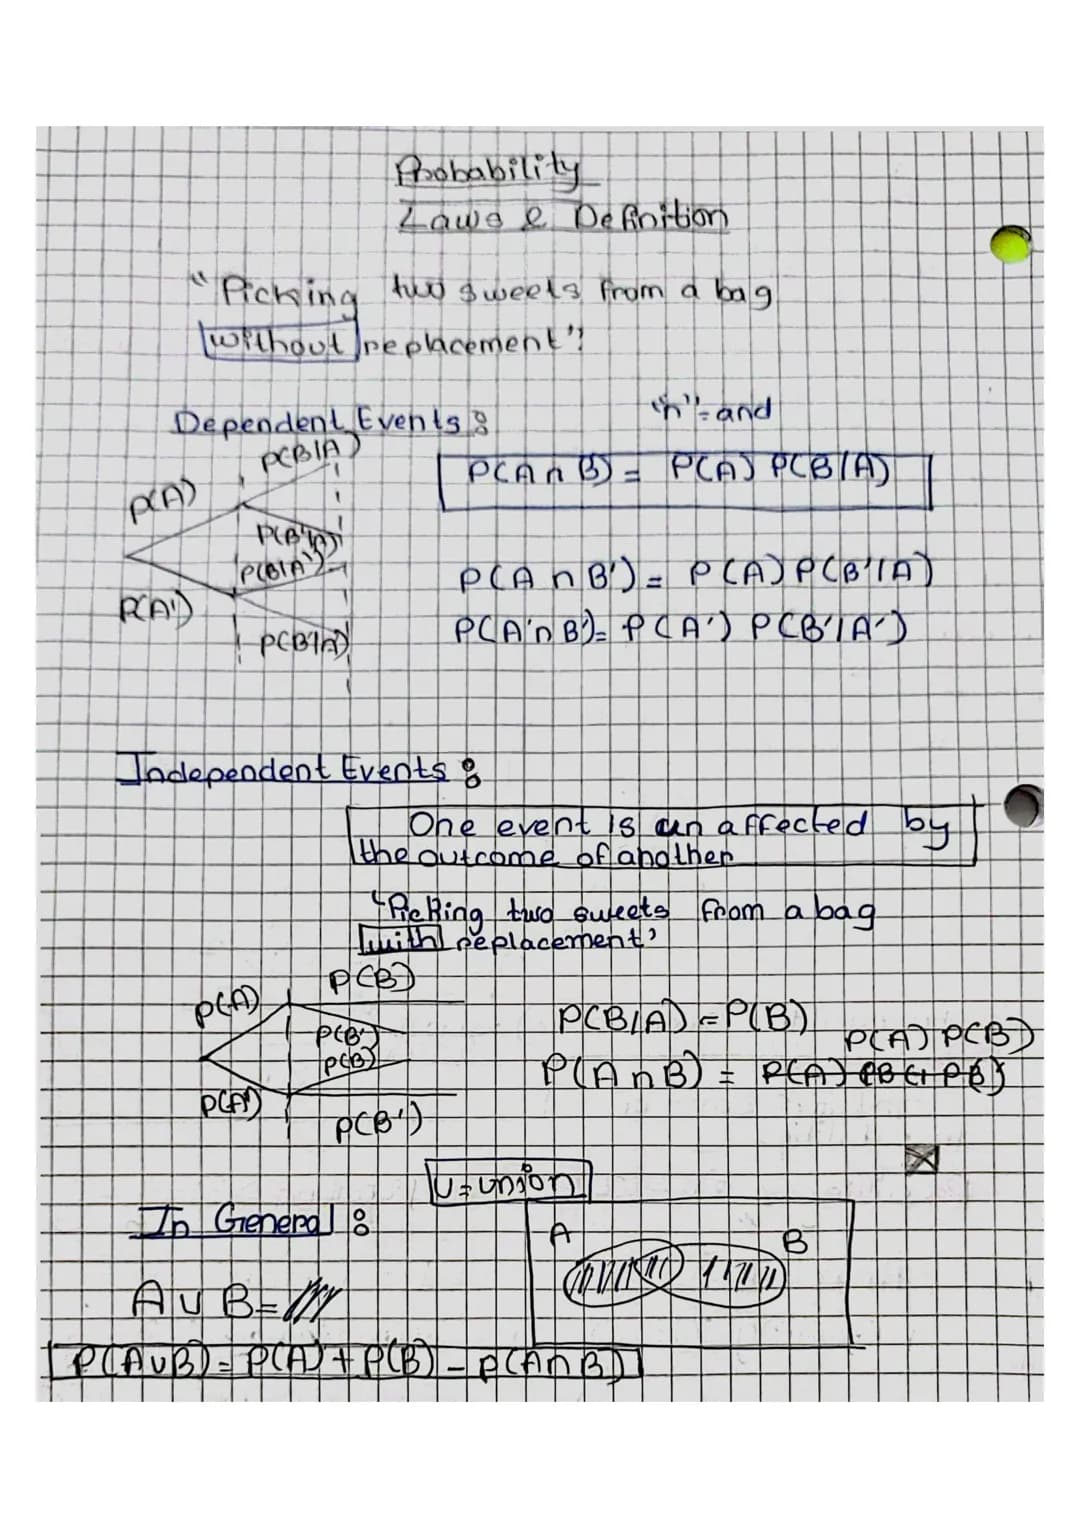 Probability
Laws & Definition
"Picking two sweets from a bag
without replacement":
Dependent Events:
"n"=and
P(B|A)
P(A)
P(B'|A)
P(B|A')
P(A')
P(B'|A)
P(A n B) = P(A) P(B|A)
P(A n B') = P(A) P(B'|A)
P(A' n B') = P(A') P(B'|A')
Independent Events:
One event is un affected by
the outcome of another
"Picking two sweets from a bag
with replacement"
P(B)
P(A)
P(B')
P(B)
P(A')
P(B')
P(B|A) = P(B)
P(A) P(B)
P(A n B) = P(A)
U = union
In General:
A
B
A U B =
P(A U B) = P(A) + P(B) - P(A n B)